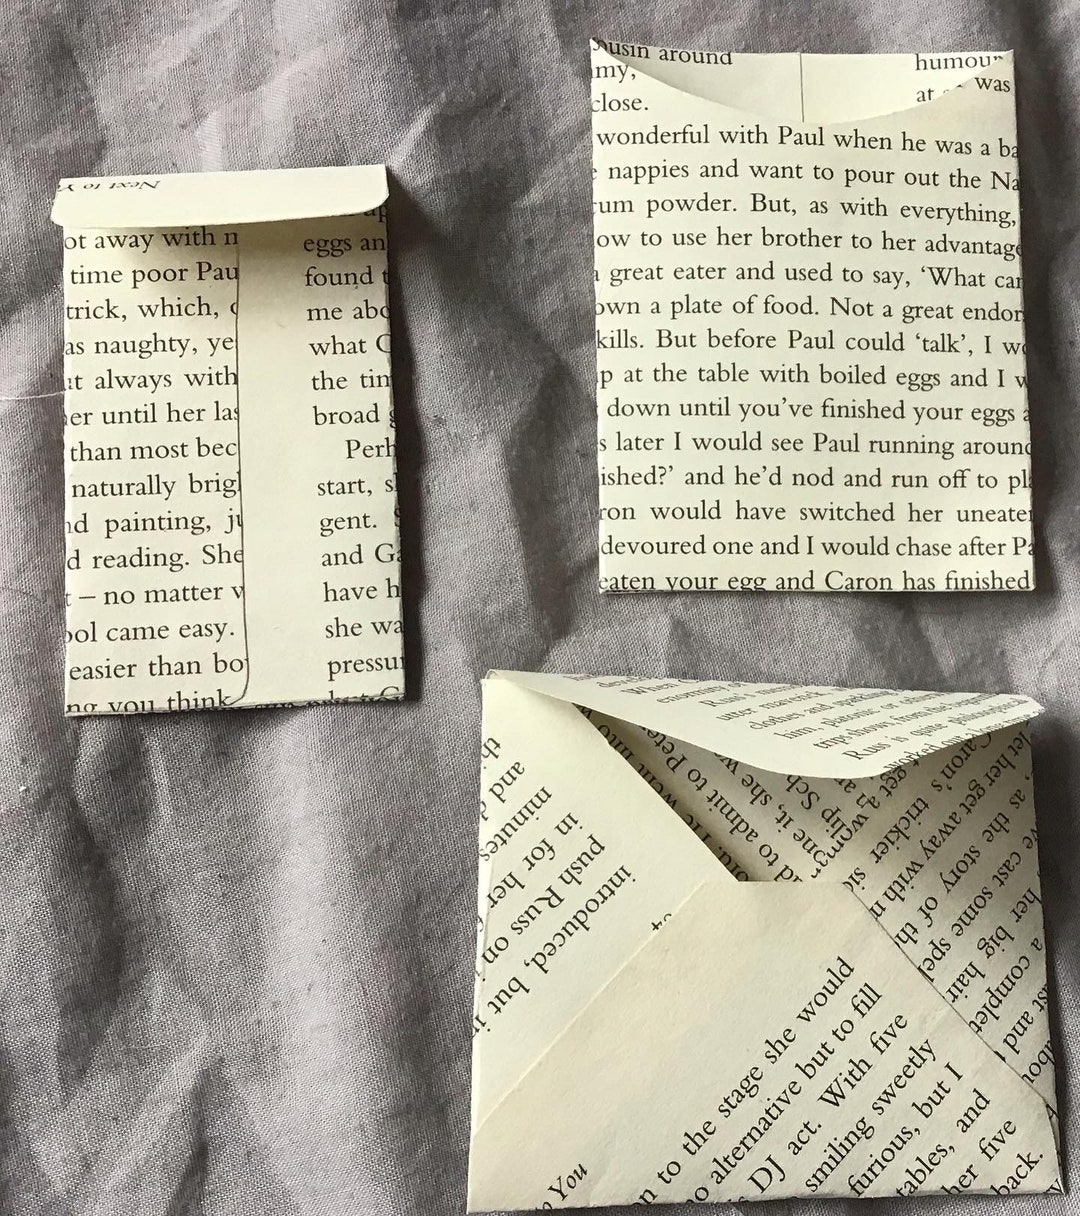 Next to
ot away with
time poor Pau
trick, which,
as naughty, ye
t always with
er until her las
than most bec
naturally brig
d painting, ju
d reading. She
– no matter
ol came easy.
easier than bo
ng you think
up
eggs an
found t
me abo
what
the tim
broad
Perh
start, s
gent.
and Ga
have h
she wa
pressu
but C
ousin around
my,
close.
humour
at was
wonderful with Paul when he was a ba
nappies and want to pour out the Na
um powder. But, as with everything,
ow to use her brother to her advantage
great eater and used to say, ‘What can
own a plate of food. Not a great endor
kills. But before Paul could ‘talk’, I wo
p at the table with boiled eggs and I w
down until you’ve finished your eggs a
s later I would see Paul running around
ished?’ and he’d nod and run off to pl
ron would have switched her uneaten
devoured one and I would chase after Pa
eaten your egg and Caron has finished
thi
and
minutes
in for her
push Russ on
introduced, but
went into
admit to Pete
one it, she w
clip Sch
a woman
get a
enormity of
Russ's
clothes and
him platonic or
trips shows from
Russ is quite philosophical
worked out
Caron's trickier si
let her get away with n
as the story of th
ve cast some spel
her big hair
a complet
st and
abou
n to the stage she would
no alternative but to fill
DJ act. With five
smiling sweetly
furious, but I
tables, and
her five
back.
You